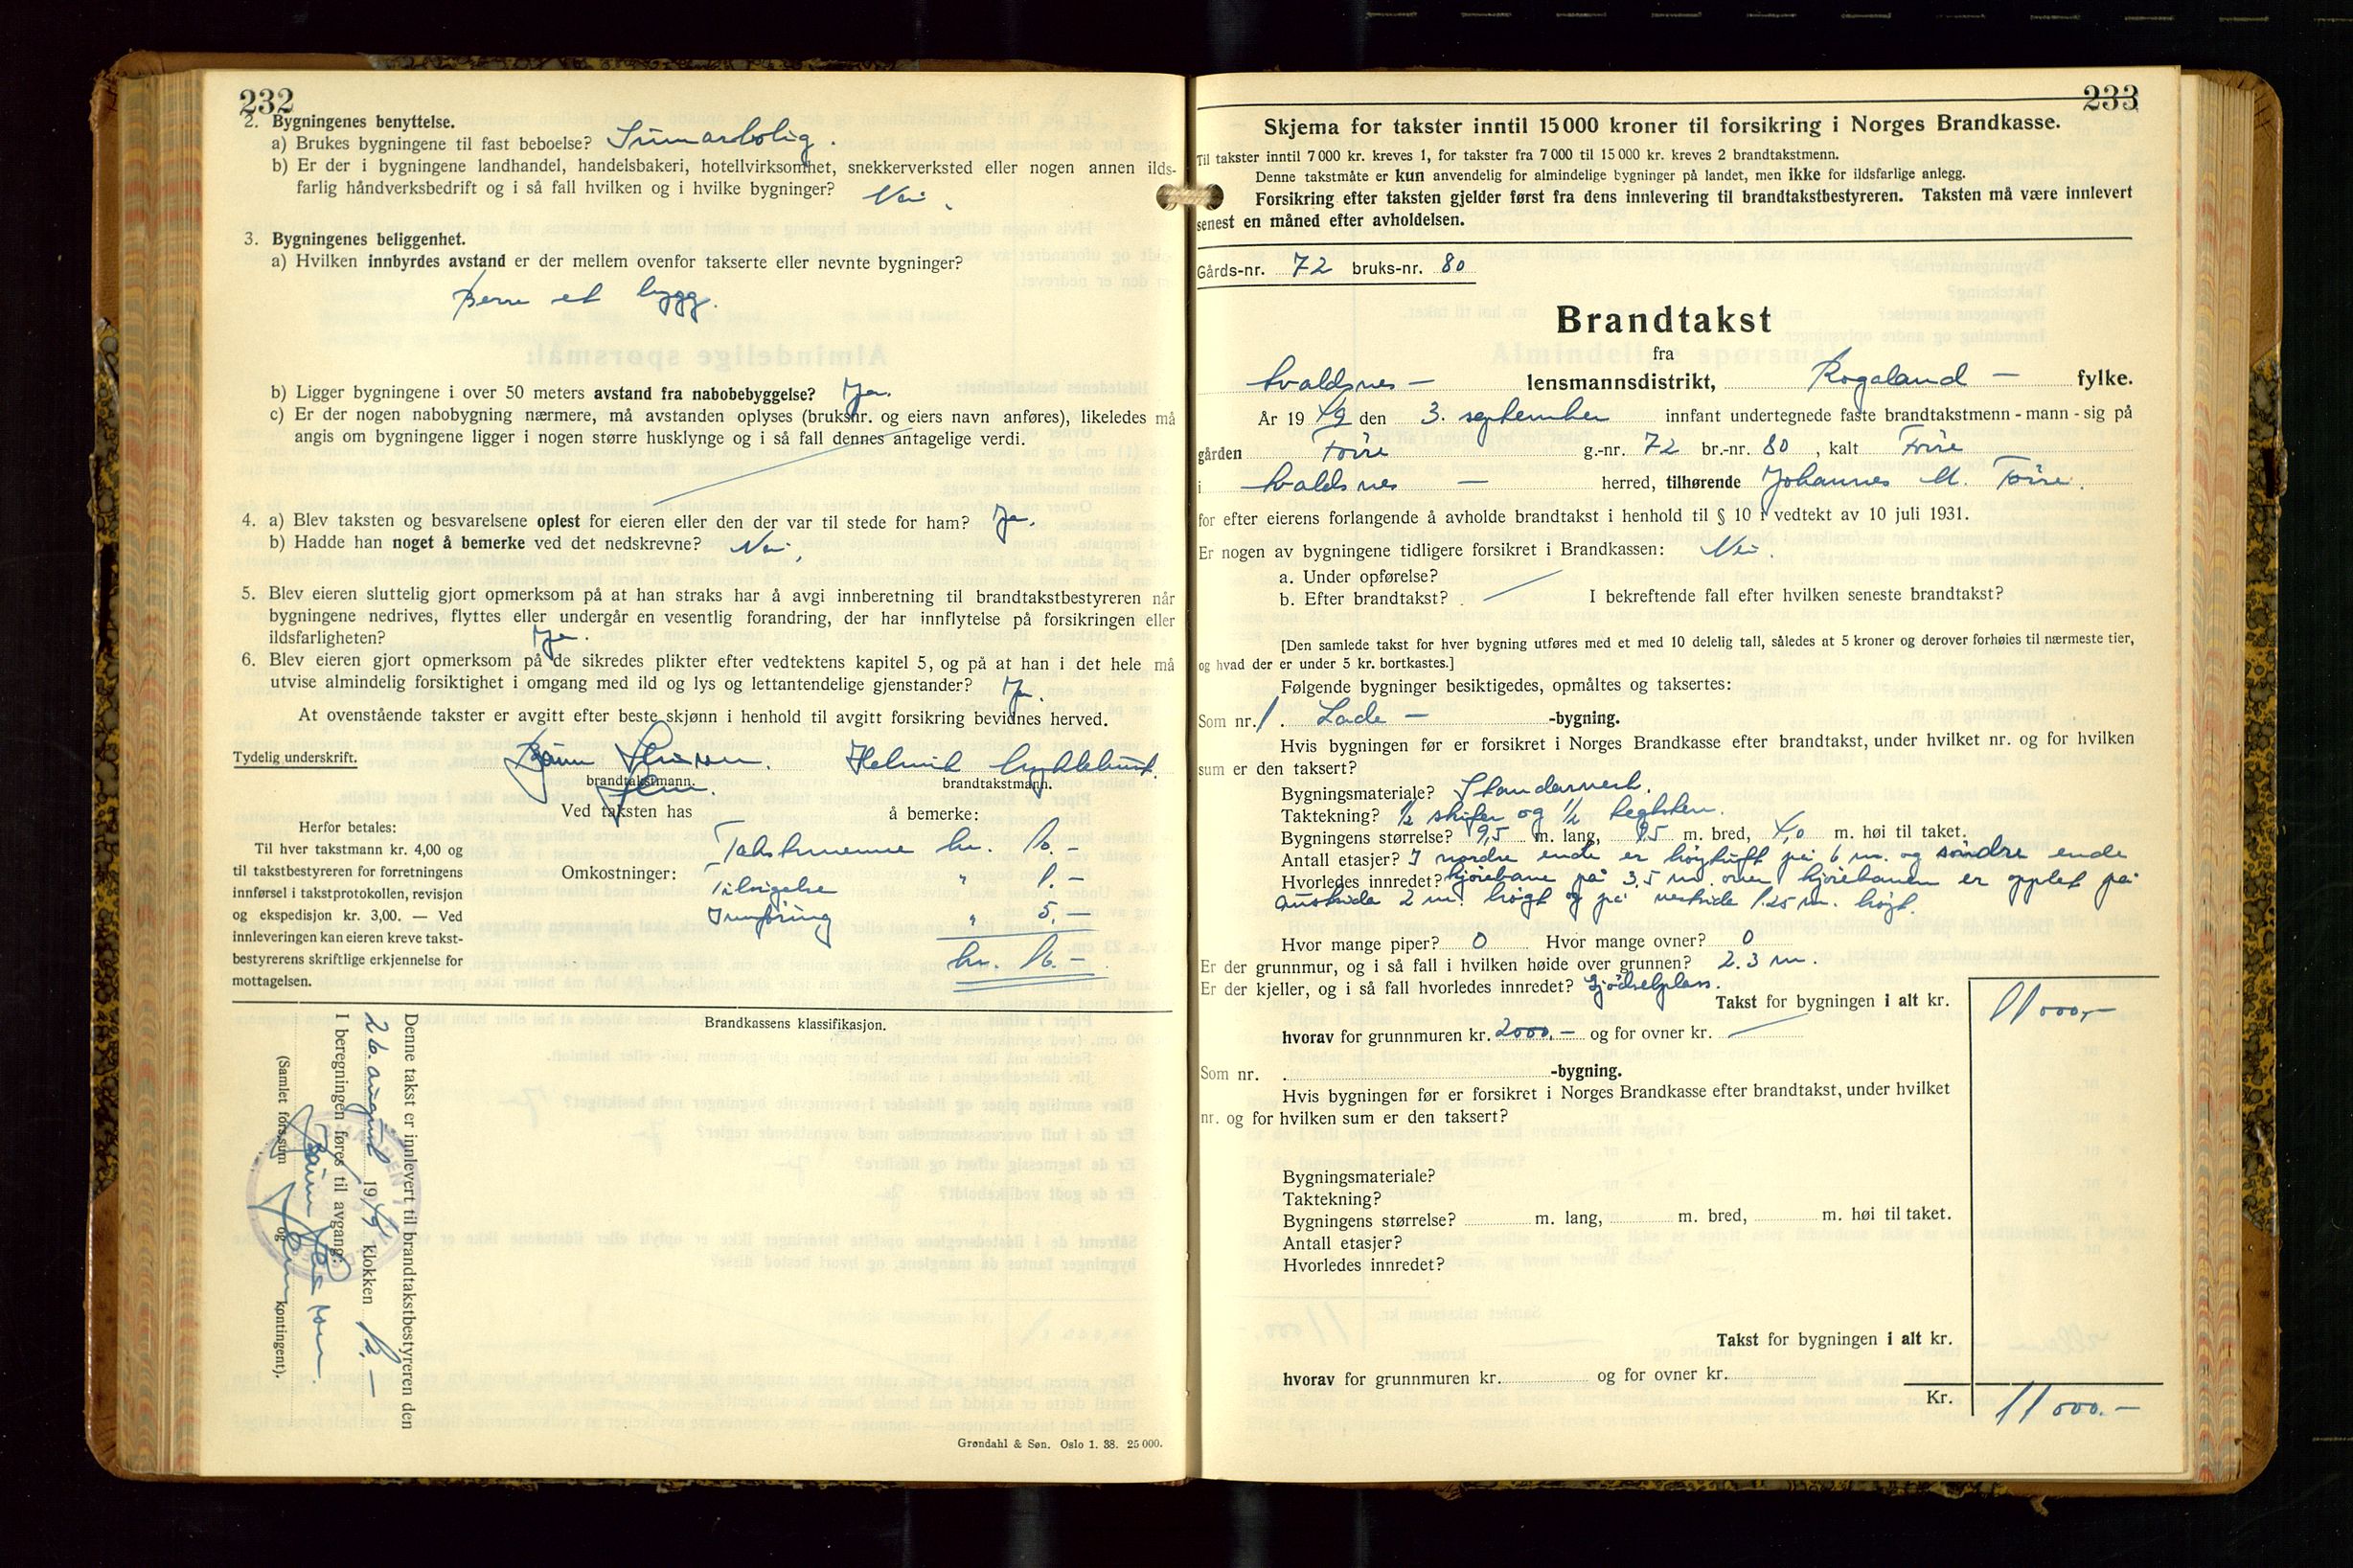 232
2. Bygningenes benyttelse.
a) Brukes bygningene til fast beboelse? Sumarbolig.
b) Er der i bygningene landhandel, handelsbakeri, hotellvirksomhet, snekkerverksted eller nogen annen ilds-
farlig håndverksbedrift og i så fall hvilken og i hvilke bygninger? Nei.
3. Bygningenes beliggenhet.
a) Hvilken innbyrdes avstand er der mellem ovenfor takserte eller nevnte bygninger?
Berre et bygg.
b) Ligger bygningene i over 50 meters avstand fra nabobebyggelse? Ja.
c) Er der nogen nabobygning nærmere, må avstanden oplyses (bruksnr. og eiers navn anføres), likeledes må
angis om bygningene ligger i nogen større husklynge og i så fall dennes antagelige verdi.
4. a) Blev taksten og besvarelsene oplest for eieren eller den der var til stede for ham? Ja.
b) Hadde han noget å bemerke ved det nedskrevne? Nei,
5. Blev eieren sluttelig gjort opmerksom på at han straks har å avgi innberetning til brandtakstbestyreren når
bygningene nedrives, flyttes eller undergår en vesentlig forandring, der har innflytelse på forsikringen eller
ildsfarligheten? Ja.
6. Blev eieren gjort opmerksom på de sikredes plikter efter vedtektens kapitel 5, og på at han i det hele må
utvise almindelig forsiktighet i omgang med ild og lys og lettantendelige gjenstander? Ja.
At ovenstående takster er avgitt efter beste skjønn i henhold til avgitt forsikring bevidnes herved.
Tydelig underskrift.
brandtakstmann. brandtakstmann.
Ved taksten has å bemerke:
Herfor betales:
Til hver takstmann kr. 4,00 og
til takstbestyreren for forretningens
innførsel i takstprotokollen, revisjon
og ekspedisjon kr. 3,00. — Ved
innleveringen kan eieren kreve takst-
bestyrerens skriftlige erkjennelse for
mottagelsen.
Takstmennene kr. 10.-
Omkostninger: Tilvigelse " 1.-
Innføring " 5.-
kr. 16.-
Brandkassens klassifikasjon.
Denne takst er innlevert til brandtakstbestyreren den
26. august 1949 klokken 12.-
I beregningen føres til avgang:
(Samlet fors.sum og kontingent).
Grøndahl & Søn. Oslo 1. 38. 25 000.
233
Skjema for takster inntil 15 000 kroner til forsikring i Norges Brandkasse.
Til takster inntil 7 000 kr. kreves 1, for takster fra 7 000 til 15 000 kr. kreves 2 brandtakstmenn.
Denne takstmåte er kun anvendelig for almindelige bygninger på landet, men ikke for ildsfarlige anlegg.
Forsikring efter taksten gjelder først fra dens innlevering til brandtakstbestyreren. Taksten må være innlevert
senest en måned efter avholdelsen.
Gårds-nr. 72 bruks-nr. 80
Brandtakst
fra
Avaldsnes — lensmannsdistrikt, Rogaland — fylke.
År 1949 den 3. september innfant undertegnede faste brandtakstmenn - mann - sig på
gården Førre g.-nr. 72 br.-nr. 80, kalt Førre
i Avaldsnes — herred, tilhørende Johannes M. Førre.
for efter eierens forlangende å avholde brandtakst i henhold til § 10 i vedtekt av 10 juli 1931.
Er nogen av bygningene tidligere forsikret i Brandkassen: Nei.
a. Under opførelse?
b. Efter brandtakst? I bekreftende fall efter hvilken seneste brandtakst?
[Den samlede takst for hver bygning utføres med et med 10 delelig tall, således at 5 kroner og derover forhøies til nærmeste tier,
og hvad der er under 5 kr. bortkastes.]
Følgende bygninger besiktigedes, opmåltes og taksertes:
Som nr. 1. Lade — -bygning.
Hvis bygningen før er forsikret i Norges Brandkasse efter brandtakst, under hvilket nr. og for hvilken
sum er den taksert?
Bygningsmateriale? Standarverk.
Taktekning? 1/2 skifer og 1/2 teglsten.
Bygningens størrelse? 9,5 m. lang, 9.5 m. bred, 4,0 m. høi til taket.
Antall etasjer? I nordre ende er høgtuft på 6 m. og søndre ende
Hvorledes innredet? kjørebane på 3.5 m. over kjørebanen er opplet på
austside 2 m. høgt og på vestside 1.25 m. høgt.
Hvor mange piper? 0 Hvor mange ovner? 0
Er der grunnmur, og i så fall i hvilken høide over grunnen? 2.3 m.
Er der kjeller, og i så fall hvorledes innredet? Gjødselplass.
Takst for bygningen i alt kr. 11 000,-
hvorav for grunnmuren kr. 2000.- og for ovner kr.
Som nr. . -bygning.
Hvis bygningen før er forsikret i Norges Brandkasse efter brandtakst, under hvilket
nr. og for hvilken sum er den taksert?
Bygningsmateriale?
Taktekning?
Bygningens størrelse? m. lang, m. bred, m. høi til taket.
Antall etasjer?
Hvorledes innredet?
Takst for bygningen i alt kr.
hvorav for grunnmuren kr. og for ovner kr.
Kr. 11 000.-